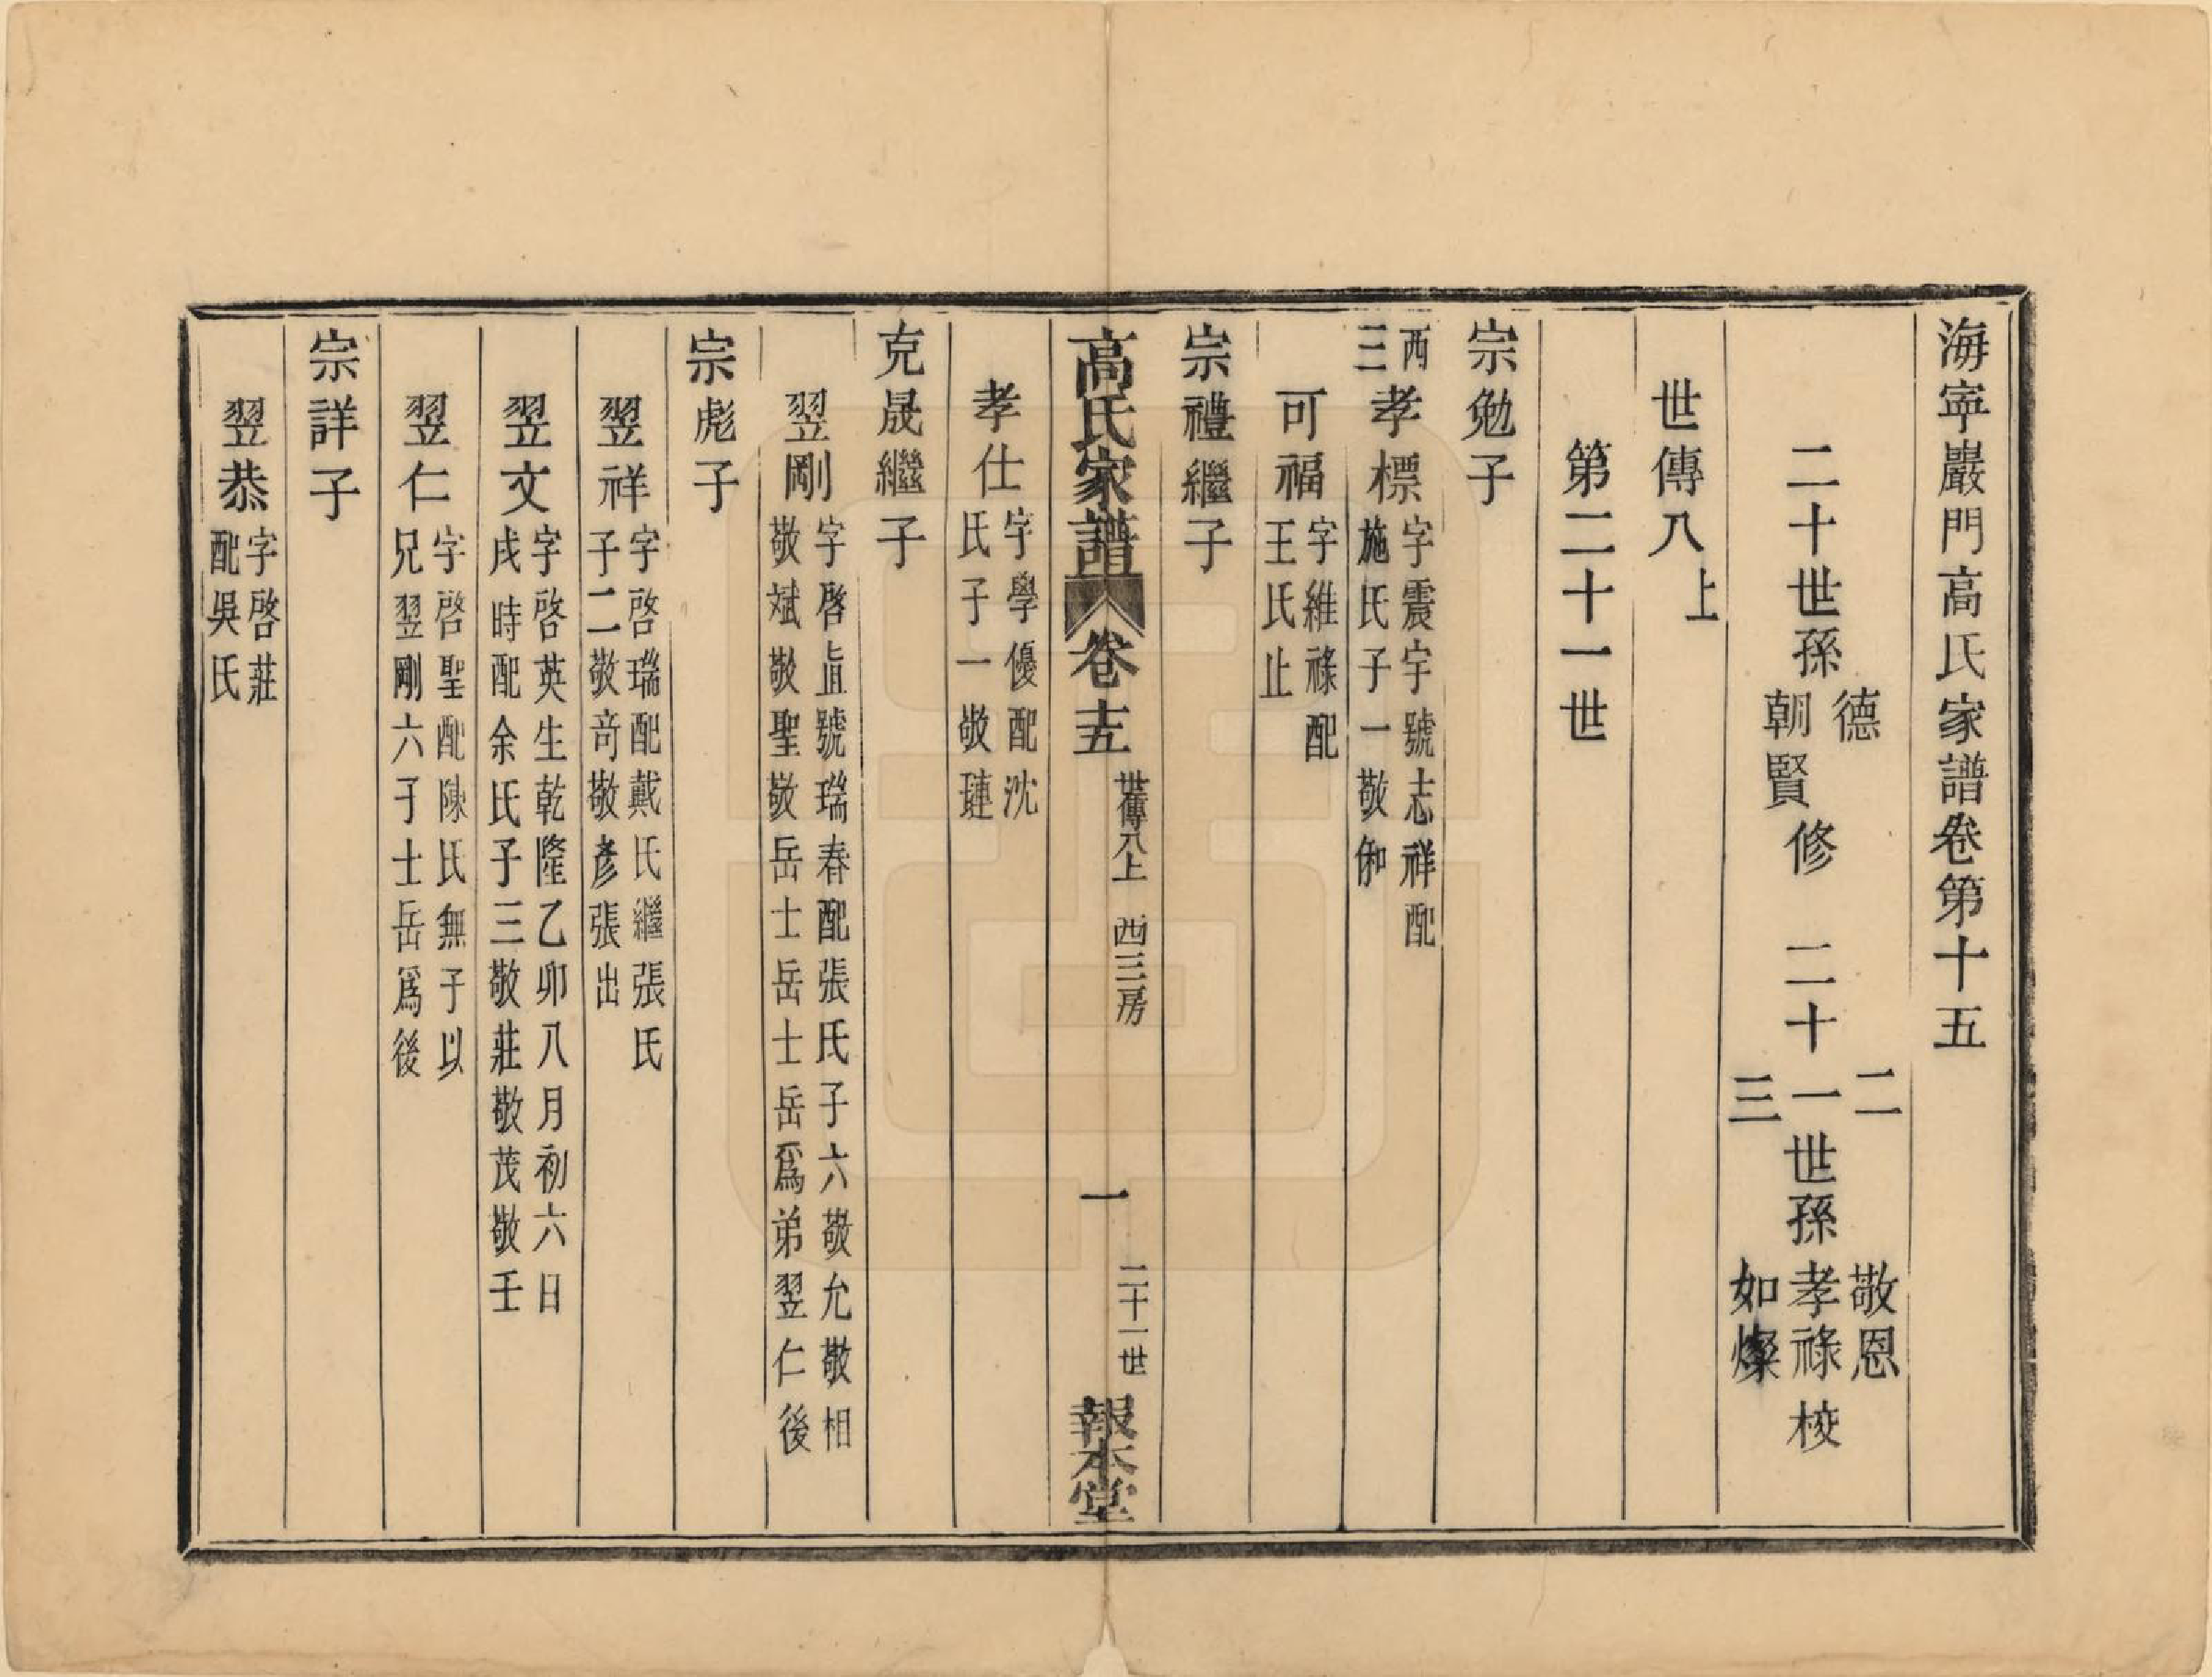 海寧巖門高氏家譜卷第十五
二十世孫德朝賢修　二十一二三世孫敬恩孝祿如燦校
世傳八上
第二十一世
宗勉子
西三孝標字震宇號志祥配
施氏子一敬俰
可福字維祿配
王氏止
宗禮繼子
高氏家譜　卷十五　世傳八上　西三房　一　二十一世　報本堂
孝仕字學優配沈
氏子一敬璉
克晟繼子
翌剛字啓直號瑞春配張氏子六敬允敬相
敬斌敬聖敬岳士岳士岳爲弟翌仁後
宗彪子
翌祥字啓瑞配戴氏繼張氏
子二敬竒敬彥張出
翌文字啓英生乾隆乙卯八月初六日
戌時配余氏子三敬莊敬茂敬壬
翌仁字啓聖配陳氏無子以
兄翌剛六子士岳爲後
宗詳子
翌恭字啓莊
配吳氏